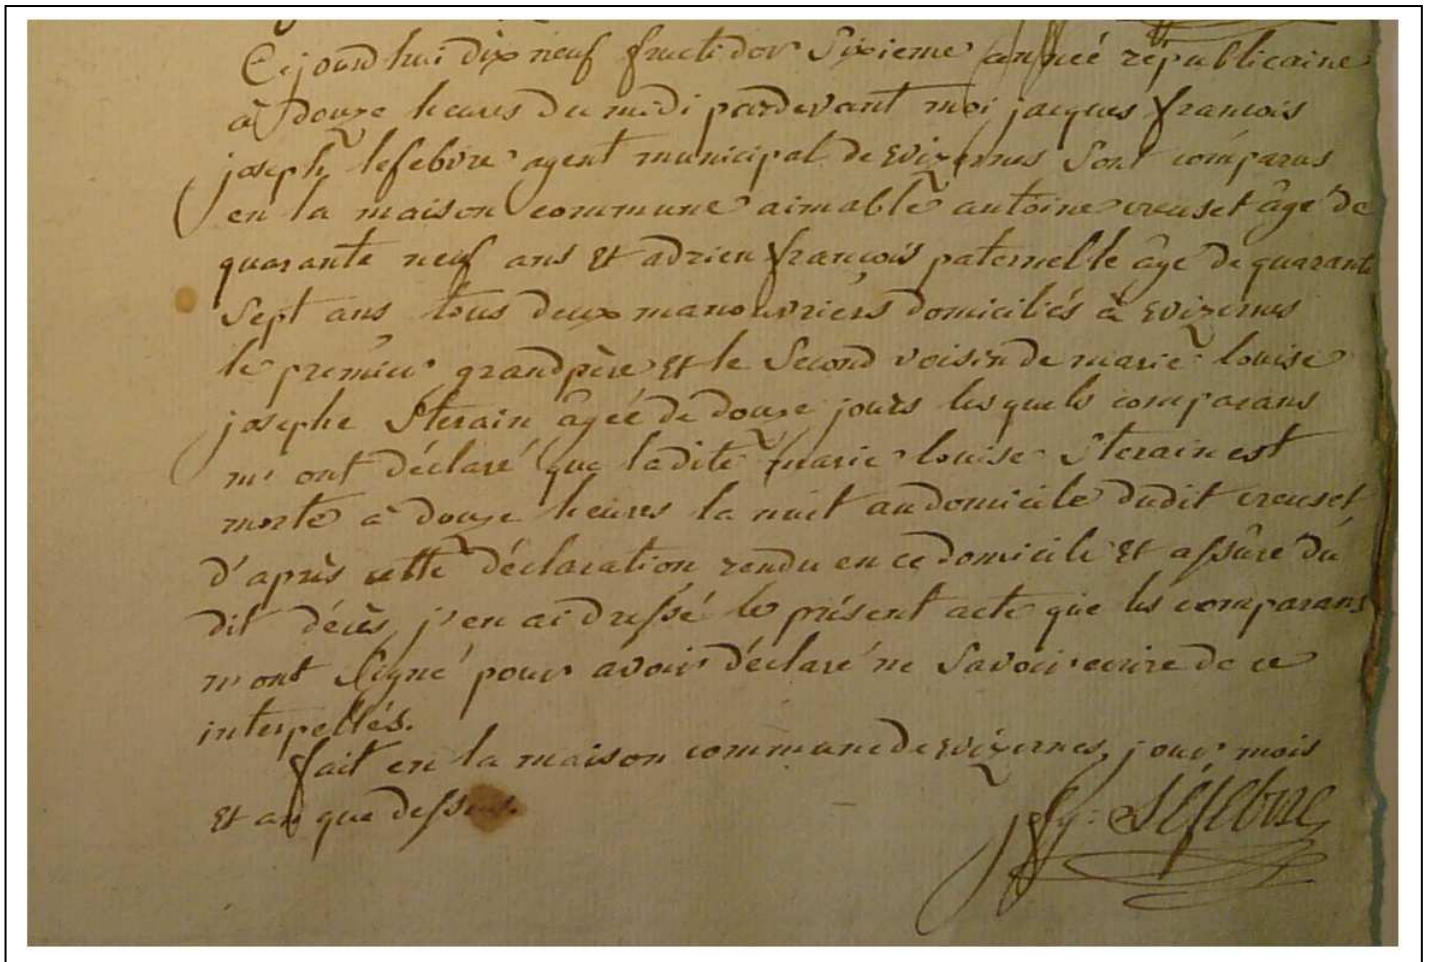 Cejourd'hui dix neuf fructidor Sixieme année républicaine
à douze heures du midi pardevant moi jacques françois
joseph lefebvre agent municipal de Wizernes Sont comparus
en la maison commune aimable antoine creuset âgé de
quarante neuf ans Et adrien françois paternelle âgé de quarante
Sept ans tous deux manouvriers domiciliés à Wizernes
le premier grandpère Et le Second voisin de marie louise
josephe Sterain âgée de douze jours lesquels comparans
m'ont déclaré que ladite marie louise Sterain est
morte à douze heures la nuit au domicile dudit creuset
d'après cette déclaration rendu en ce domicile Et assûré du
dit décès, j'en ai dressé le présent acte que les comparans
n'ont Signé pour avoir déclaré ne Savoir ecrire de ce
interpellés.
fait en la maison commune de Wizernes, jour mois
Et an que dessus.
Lefebvre